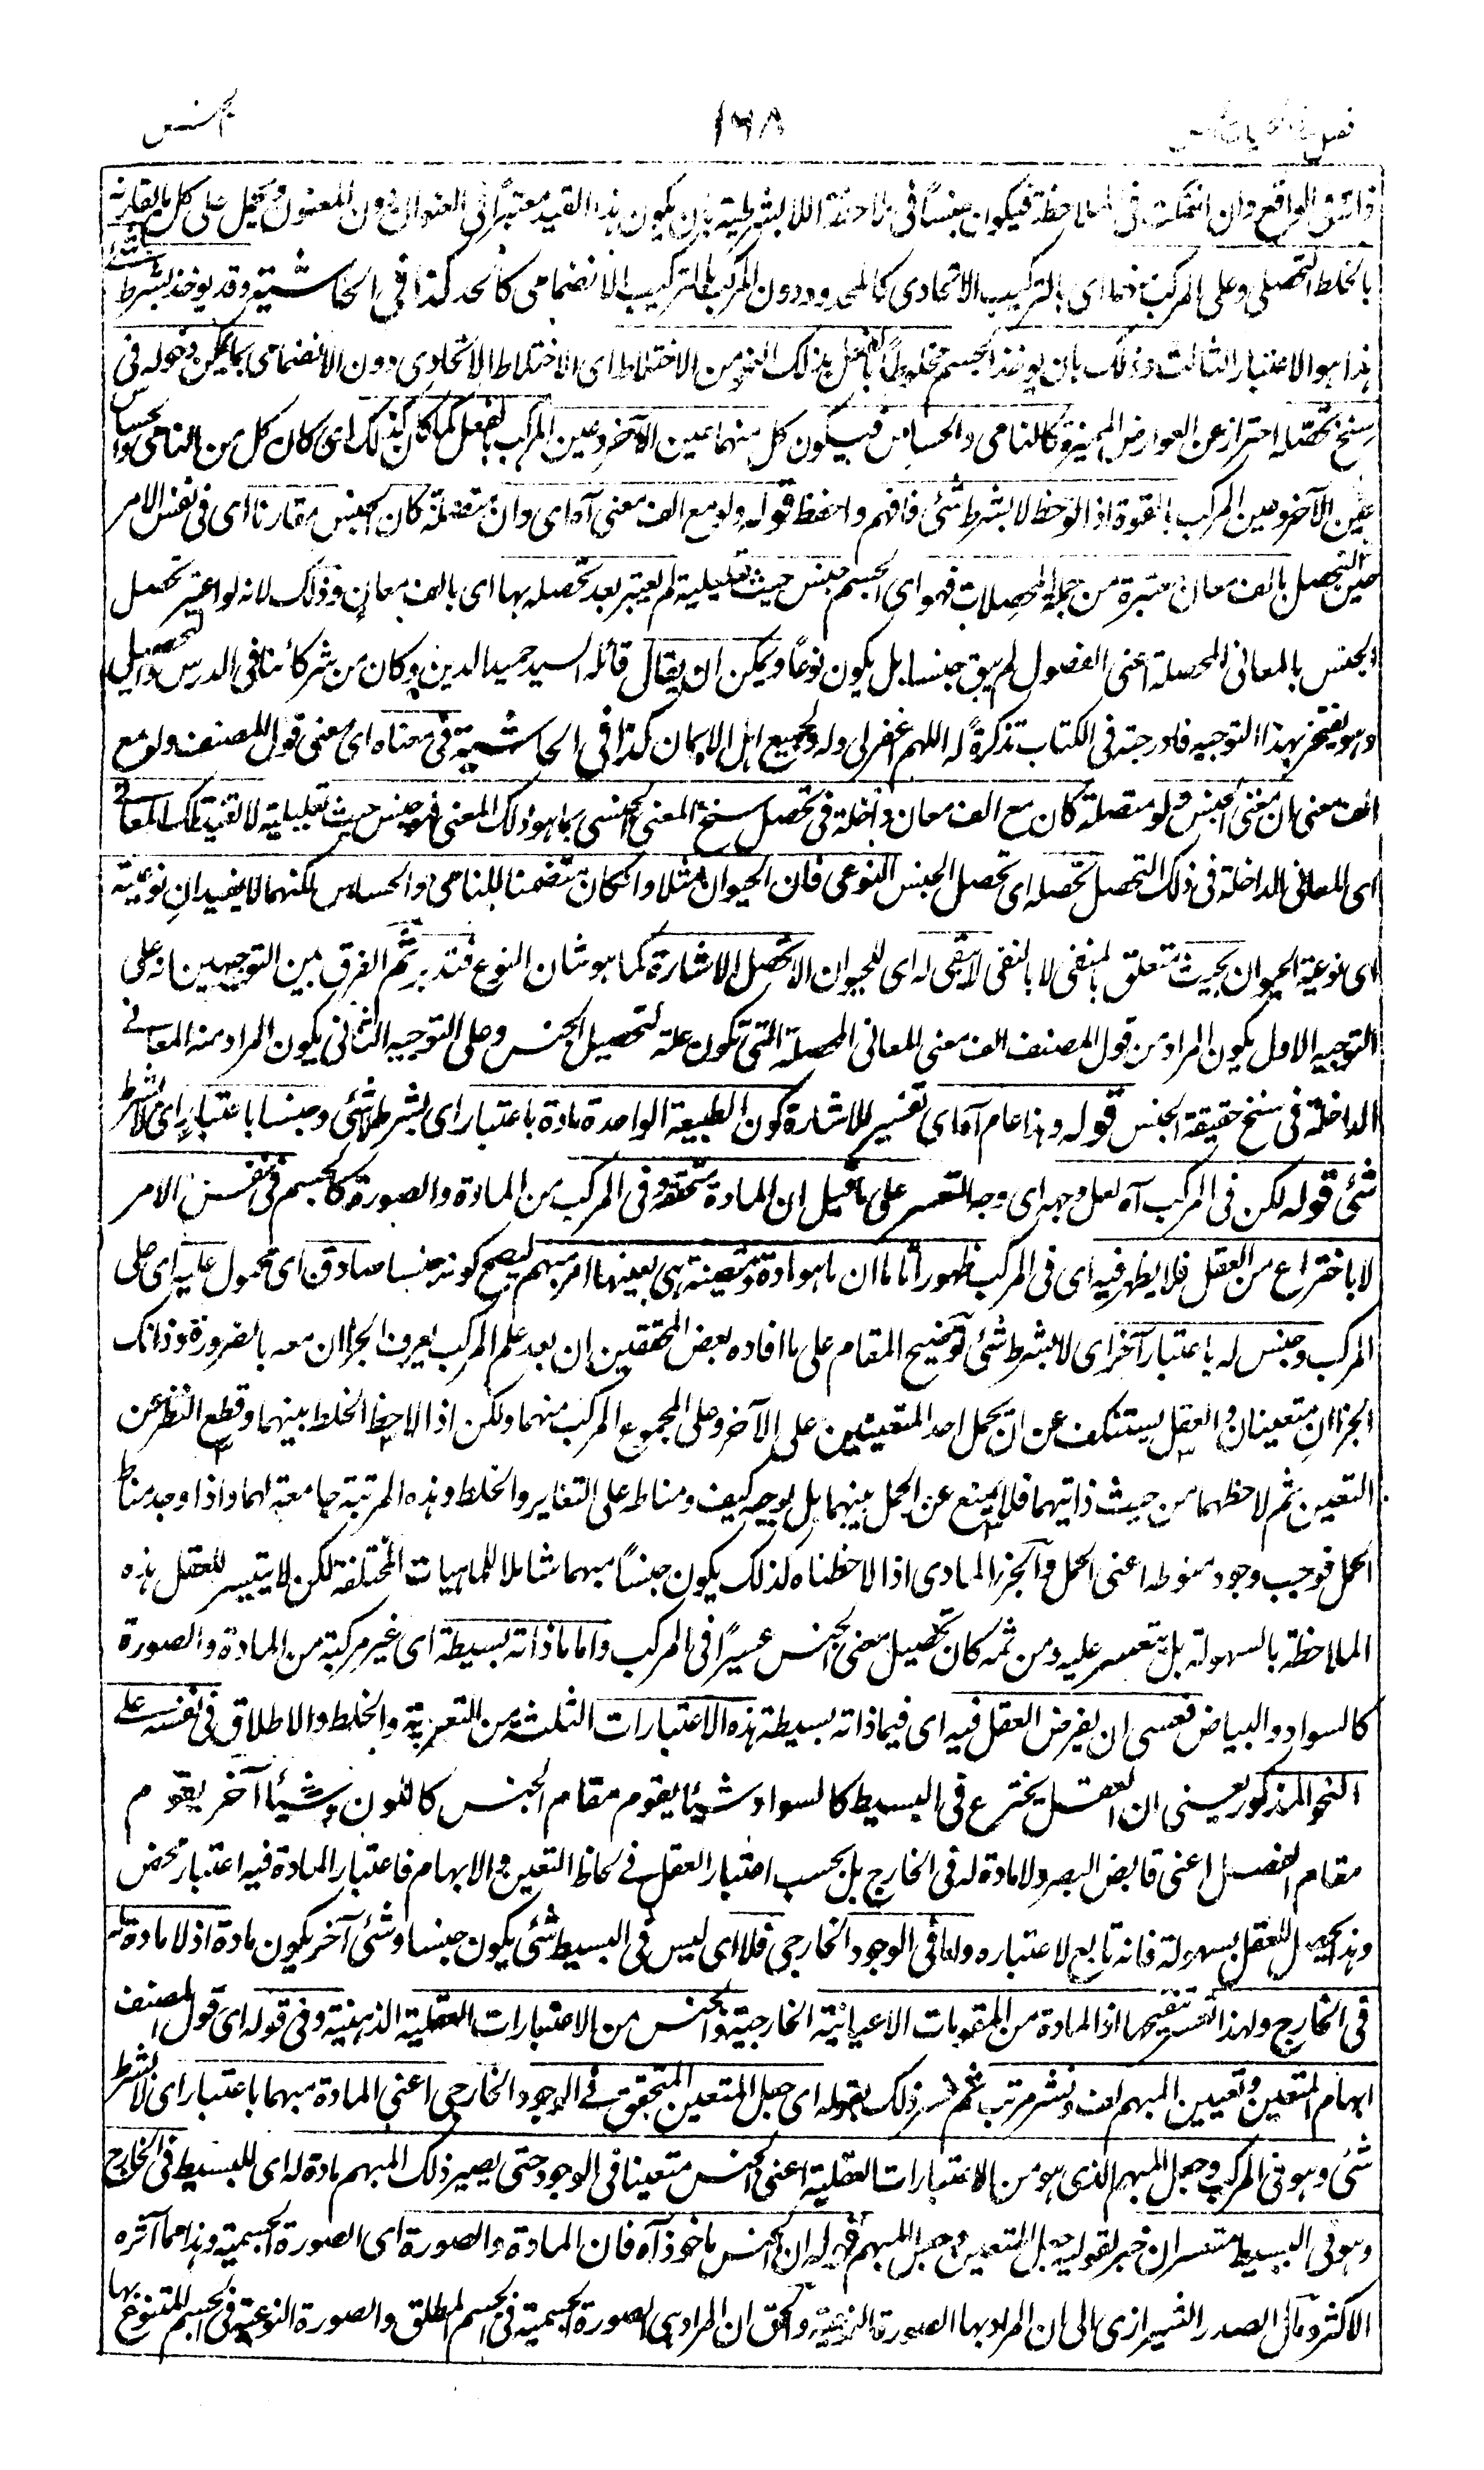 ١٦٨
الجنس
بالخلط التحصلي وعلى المركب منهما اى بالتركيب الاتحادى كالمحدود دون المركب بالتركيب الانضمامى كالحد كذا فى الحاشية وقد يوخذ بشرط شئ
هذا هو الاعتبار الثالث وذلك بان يوخذ الجسم مخلوطا بالفعل بذلك النحو من الاختلاط اى الاختلاط الاتحادى دون الانضمامى بما يمكن دخوله فى
سنخ تحصله احتراز عن العوارض المميزة كالنامى والحساس فيكون كل منهما عين الآخر وعين المركب بالفعل كما كان كذلك اى كان كل من النامى والحساس
عين الآخر وعين المركب بالقوة اذا لوحظ لا بشرط شئ فافهم واحفظ قوله ولو مع الف معنى آه اى وان متصلة كان الجنس مقارنا اى فى نفس الامر
حين التحصل بالف معان معتبرة من جملة المحصلات فهو اى الجسم جنس حيث تعليلية لم يعتبر بعد تحصله بها اى بالف معان وذلك لانه لو اعتبر تحصل
الجنس بالمعانى المحصلة اعنى الفصول لم يبق جنسا بل يكون نوعا ويمكن ان يقال قائله السيد حميد الدين وكان من شركائنا فى الدرس والتحصيل
وهو يفتخر بهذا التوجيه فادرجته فى الكتاب تذكرة له اللهم اغفر لى وله ولجميع اهل الايمان كذا فى الحاشية فى معناه اى معنى قول المصنف ولو مع
الف معنى ان معنى الجنس ولو متصلة كان مع الف معان داخلة فى تحصل سنخ المعنى الجنسى بما هو ذلك المعنى فهو جنس حيث تعليلية لا تفيد تلك المعانى
اى المعانى الداخلة فى ذلك التحصل تحصله اى تحصل الجنس النوعى فان الحيوان مثلا وان كان متضمنا للنامى والحساس لكنهما لا يفيدان نوعيته
اى نوعية الحيوان بحيث متعلق بالمنفى لا بالنفى لا يبقى له اى للحيوان الا تحصل الاشارة كما هو شان النوع فتدبر ثم الفرق بين التوجيهين انه على
التوجيه الاول يكون المراد من قول المصنف الف معنى المعانى المحصلة التى تكون علة لتحصيل الجنس وعلى التوجيه الثانى يكون المراد منه المعانى
الداخلة فى سنخ حقيقة الجنس قوله وهذا عام آه اى تفسير للاشارة كون الطبيعة الواحدة مادة باعتبار اى بشرط لا شئ وجنسا باعتبار اى لا بشرط
شئ قوله لكن فى المركب آه لعل وجهه اى وجه التعسر على ما قيل ان المادة متحققة فى المركب من المادة والصورة كالجسم فى نفس الامر
لا باختراع من العقل فلا يظهر فيه اى فى المركب ظهورا تاما ان ما هو مادة ومتعينة هى بعينها امر مبهم ليصح كونه جنسا صادق اى محمول عليه اى على
المركب وجنس له باعتبار آخر اى لا بشرط شئ توضيح المقام على ما افاده بعض المحققين ان بعد علم المركب يعرف الجزاان معه بالضرورة وذانك
الجزاان متعينان والعقل يستنكف عن ان يحمل احد المتعينين على الآخر وعلى المجموع المركب منهما ولكن اذا لاحظ الخلط بينهما وقطع النظر عن
التعين ثم لاحظهما من حيث ذاتيهما فلا يمنع عن الحمل بينهما بل يوجبه كيف ومناطه على التغاير والخلط وهذه المرتبة جامعة لهما واذا وجد مناط
الحمل فوجب وجود منوطه اعنى الحمل والجزء المادى اذا لاحظناه لذلك يكون جنسا مبهما شاملا للماهيات المختلفة لكن لا يتيسر للعقل هذه
الملاحظة بالسهولة بل يتعسر عليه ومن ثمه كان تحصيل معنى الجنس عسيرا فى المركب واما ما ذاته بسيطة اى غير مركبة من المادة والصورة
كالسواد والبياض فعسى ان يفرض العقل فيه اى فيما ذاته بسيطة هذه الاعتبارات الثلثة من التعرية والخلط والاطلاق فى نفسه على
النحو المذكور يعنى ان العقل يخترع فى البسيط كالسواد شيئا يقوم مقام الجنس كاللون وشيئا آخر يقوم
مقام الفصل اعنى قابض البصر ولا مادة له فى الخارج بل بحسب اعتبار العقل فى لحاظ التعين والابهام فاعتبار المادة فيه اعتبار محض
وهذا يحصل للعقل بسهولة فانه تابع لاعتباره واما فى الوجود الخارجى فلا اى ليس فى البسيط شئ يكون جنسا وشئ آخر يكون مادة اذ لا مادة له
فى الخارج ولهذا تعسر تنقيحها اذ المادة من المقومات الاعيانية الخارجية والجنس من الاعتبارات العقلية الذهنية وفى قوله اى قول المصنف
ابهام المتعين وتعيين المبهم لف ونشر مرتب ثم فسر ذلك بقوله اى جعل المتعين المتحقق فى الوجود الخارجى اعنى المادة مبهما باعتبار اى لا بشرط
شئ وهو فى المركب وجعل المبهم الذى هو من الاعتبارات العقلية اعنى الجنس متعينا فى الوجود حتى يصير ذلك المبهم مادة له اى للبسيط فى الخارج
وهو فى البسيط متعسران خبر لقوله جعل المتعين وجعل المبهم قوله ان الجنس ماخوذ آه فان المادة والصورة اى الصورة الجسمية وهذا مما آثره
الاكثر ومال الصدر الشيرازى الى ان المراد بها الصورة النوعية والحق ان المراد هى الصورة الجسمية فى الجسم المطلق والصورة النوعية فى الجسم المتنوع بها